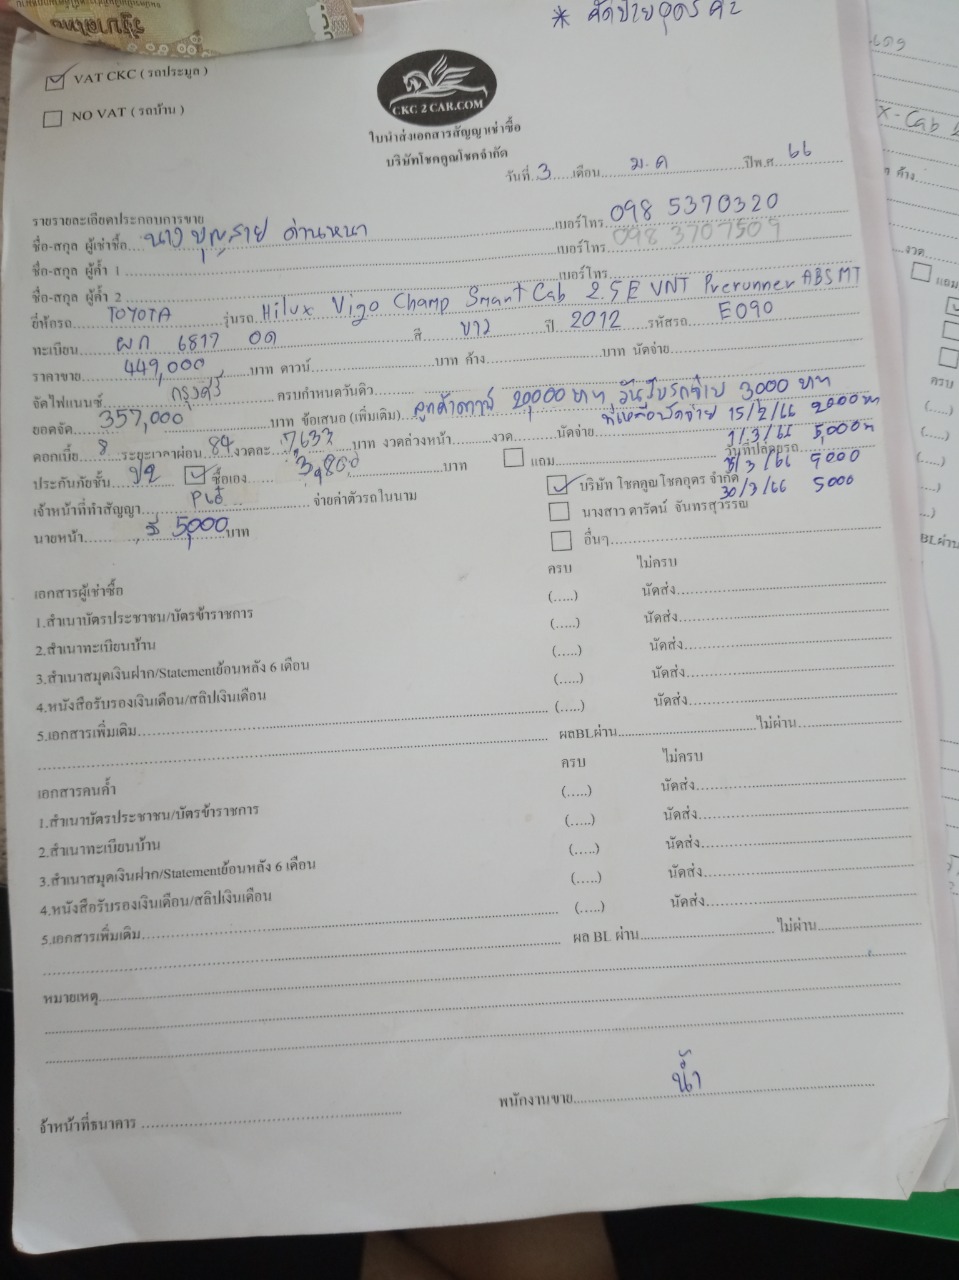 * คัดป้ายอุดร
VAT CKC ( รถประมูล )
NO VAT ( รถบ้าน )
CKC 2 CAR.COM
ใบนำส่งเอกสารสัญญาเช่าซื้อ
บริษัทโชคคูณโชคจำกัด
วันที่ 3 เดือน ม.ค ปีพ.ศ. 66
รายรายละเอียดประกอบการขาย
ชื่อ-สกุล ผู้เช่าซื้อ นาง บุญสาย ด่านหนา เบอร์โทร 098 5370320
ชื่อ-สกุล ผู้ค้ำ 1 เบอร์โทร 098 3707509
ชื่อ-สกุล ผู้ค้ำ 2 เบอร์โทร
ยี่ห้อรถ TOYOTA รุ่นรถ Hilux Vigo Champ Smart Cab 2.5 E VNT Prerunner ABS MT
ทะเบียน ผก 6817 อด สี ขาว ปี 2012 รหัสรถ E090
ราคาขาย 449,000 บาท ดาวน์ บาท ค้าง บาท นัดจ่าย
จัดไฟแนนซ์ กรุงศรี ครบกำหนดวันดิว
ยอดจัด 357,000 บาท ข้อเสนอ (เพิ่มเติม) ลูกค้าดาวน์ 20,000 บาท วันรับรถจ่าย 3000 บาท
ที่เหลือนัดจ่าย 15/2/66 2000
ดอกเบี้ย 8 ระยะเวลาผ่อน 84 งวดละ 7,633 บาท งวดล่วงหน้า งวด นัดจ่าย
1/3/66 5,000
ประกันภัยชั้น ซื้อเอง 3,800 บาท แถม วันที่ปล่อยรถ
/3/66 9000
เจ้าหน้าที่ทำสัญญา จ่ายค่าตัวรถในนาม บริษัท โชคคูณโชคอุดร จำกัด
30/3/66 5000
นางสาว ดารัตน์ จันทรสุวรรณ
นายหน้า 5,000 บาท อื่นๆ
เอกสารผู้เช่าซื้อ ครบ ไม่ครบ
1.สำเนาบัตรประชาชน/บัตรข้าราชการ (.....) นัดส่ง
2.สำเนาทะเบียนบ้าน (.....) นัดส่ง
3.สำเนาสมุดเงินฝาก/Statementย้อนหลัง 6 เดือน (.....) นัดส่ง
4.หนังสือรับรองเงินเดือน/สลิปเงินเดือน (.....) นัดส่ง
5.เอกสารเพิ่มเติม (.....) นัดส่ง
ผลBLผ่าน ไม่ผ่าน
เอกสารคนค้ำ ครบ ไม่ครบ
1.สำเนาบัตรประชาชน/บัตรข้าราชการ (.....) นัดส่ง
2.สำเนาทะเบียนบ้าน (.....) นัดส่ง
3.สำเนาสมุดเงินฝาก/Statementย้อนหลัง 6 เดือน (.....) นัดส่ง
4.หนังสือรับรองเงินเดือน/สลิปเงินเดือน (.....) นัดส่ง
5.เอกสารเพิ่มเติม (.....) นัดส่ง
ผล BL ผ่าน ไม่ผ่าน
หมายเหตุ
พนักงานขาย น้ำ
จ้าหน้าที่ธนาคาร